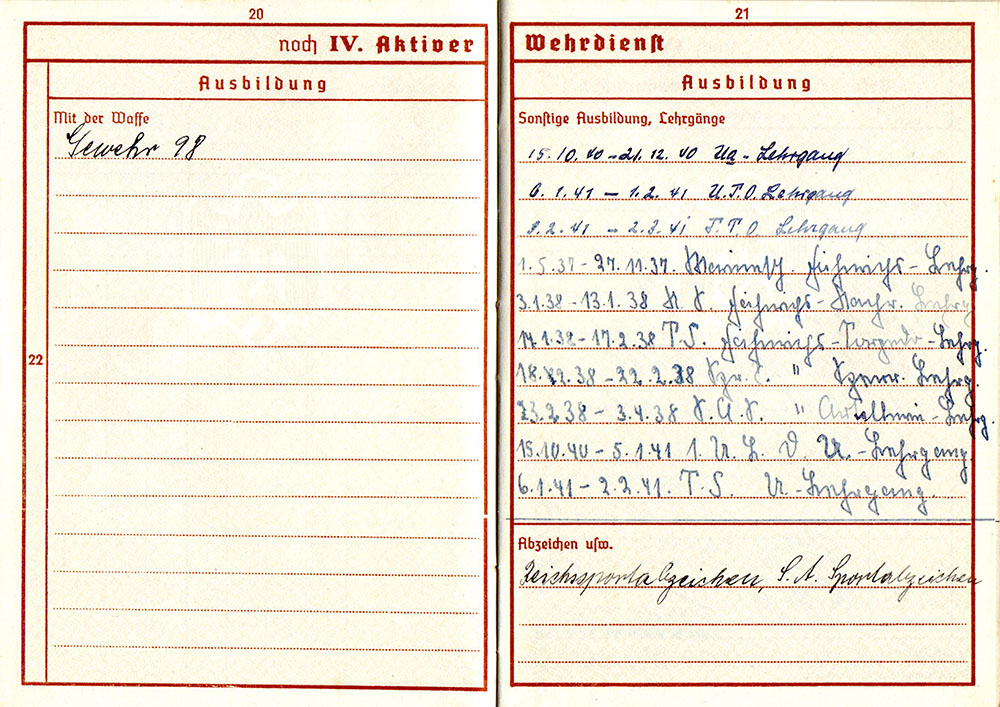 20
noch IV. Aktiver
Ausbildung
Mit der Waffe
Gewehr 98
22
21
Wehrdienst
Ausbildung
Sonstige Ausbildung, Lehrgänge
15.10.40 - 21.12.40 Ua - Lehrgang
6.1.41 - 1.2.41 U.T.O. Lehrgang
3.2.41 - 2.3.41 F.T.O Lehrgang
1.5.37 - 27.11.37. Fähnrichs - Lehrg.
3.1.38 - 13.1.38 N.S. Fähnrichs - Nachr. Lehrg
14.1.38 - 17.2.38 T.S. Fähnrichs - Torpedo - Lehrg.
18.2.38 - 22.2.38 " Sperr. Lehrg.
23.2.38 - 3.4.38 S.A.S. " Artillerie - Lehrg.
15.10.40 - 5.1.41 1. U. L. D. U. - Lehrgang
6.1.41 - 2.2.41. T.S. U - Lehrgang.
Abzeichen usw.
Reichssportabzeichen, S.A. Sportabzeichen